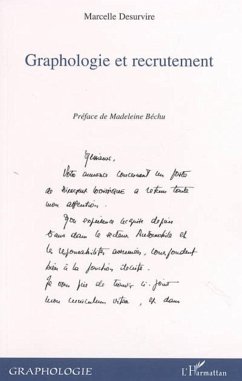 Marcelle Desurvire
Graphologie et recrutement
Préface de Madeleine Béchu
Messieurs,
Votre annonce concernant un poste
de Directeur Commercial a retenu toute
mon attention.
Mon expérience acquise depuis
5 ans dans le secteur Automobile et
les responsabilités assumées, correspondent
bien à la fonction décrite.
Je vous prie de trouver ci-joint
mon curriculum vitae, et dans
GRAPHOLOGIE
L'Harmattan